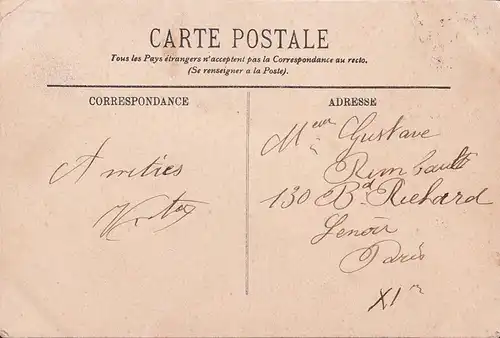 CARTE POSTALE
Tous les Pays étrangers n'acceptent pas la Correspondance au recto.
(Se renseigner a la Poste).
CORRESPONDANCE
Amitiés
ADRESSE
Meur Gustave
Rimbault
130 Bd Richard
Lenoir
Paris
XIe